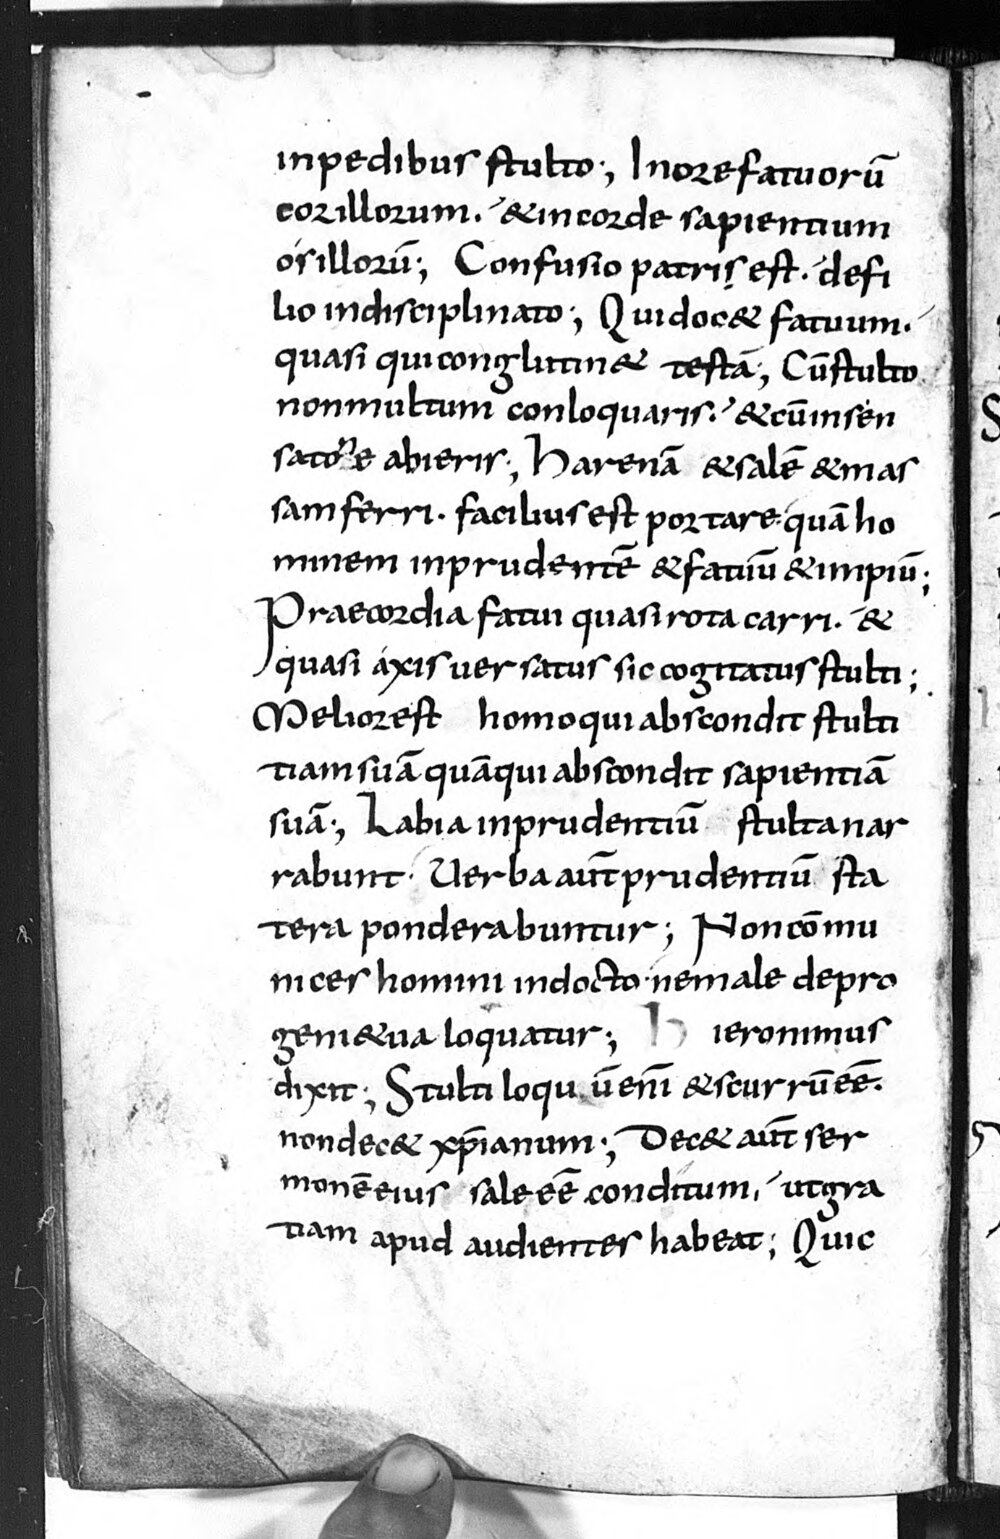 inpedibus stulto·; Inore fatuorū
cor illorum. &incorde sapientium
ós illorū; Confusio patris est. defi
lio indisciplinato·, Qui doc& fatuum.
quasi qui conglutin& testā; Cū stulto
non multum conloquaris. &cū insen
sato ne abieris; harenā &salē &mas
sam ferri. facilius est portare quā ho
minem inprudentē &fatuū &impiū;
Praecordia fatui quasi rota carri. &
quasi áxis uersatus sic cogitatus stulti;
Melior est homo qui abscondit stulti
tiam suā quā qui abscondit sapientiā
suā·, Labia inprudentiū stulta nar
rabunt. Uerba aut̄ prudentiū sta
tera ponderabuntur; Non cōmu
nices homini indocto. ne male depro
geni& ua loquatur; hieronimus
dixit; Stulti loqu ūenī &scurrū eē.
non dec& xp̄ianum·, Dec& aut̄ ser
monē eius sale eē conditum, ut gra
tiam apud audientes habeat; Quic